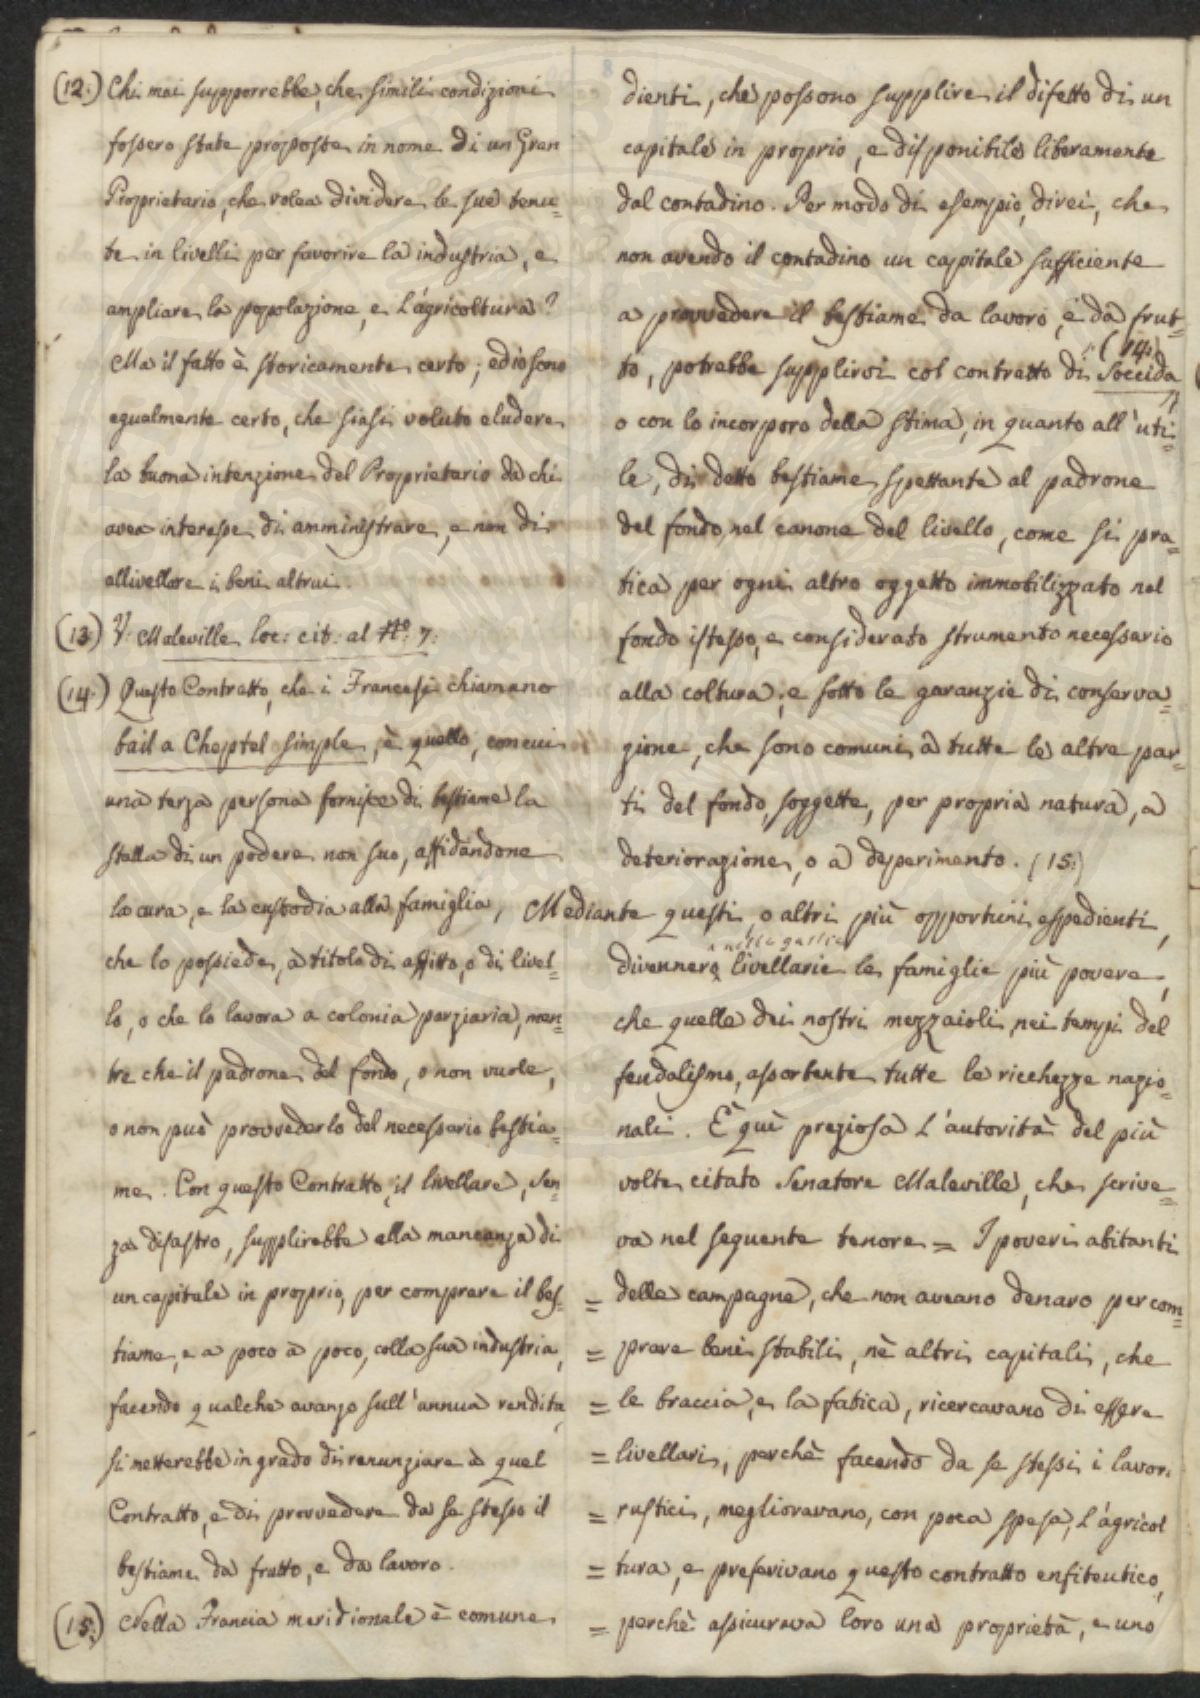 (12.) Chi mai supporrebbe, che simili condizioni
fossero state proposte in nome di un Gran
Proprietario, che volea dividere le sue tenu=
te in livelli per favorire la industria, e
ampliare la popolazione, e l'agricoltura?
Ma il fatto è storicamente certo; ed io sono
egualmente certo, che siasi voluto eludere
la buona intenzione del Proprietario da chi
avea interesse di amministrare, e non di
allivellare i beni altrui.
(13.) V. Maleville loc: cit: al No. 7:
(14.) Questo Contratto, che i Francesi chiamano
bail a Cheptel simple, è quello, con cui
una terza persona fornisce di bestiame la
stalla di un podere non suo, affidandone
la cura, e la custodia alla famiglia,
che lo possiede, a titolo di affitto, o di livel=
lo, o che lo lavora a colonia parziaria, men=
tre che il padrone del fondo, o non vuole,
o non può provvederlo del necessario bestia=
me. Con questo Contratto, il livellare, sen=
za disastro, supplirebbe alla mancanza di
un capitale in proprio, per comprare il bes=
tiame, e a poco a poco, colla sua industria,
facendo qualche avanzo sull'annua rendita,
si metterebbe in grado di renunziare a quel
Contratto, e di provvedere da se stesso il
bestiame da frutto, e da lavoro.
(15.) Nella Francia meridionale è comune
dienti, che possono supplire il difetto di un
capitale in proprio, e disponibile liberamente
dal contadino. Per modo di esempio, direi, che
non avendo il contadino un capitale sufficiente
a provvedere il bestiame da lavoro, e da frut=
(14.)
to, potrebbe supplirsi col contratto di Soccida
o con lo incorporo della stima, in quanto all'uti=
le, di detto bestiame spettante al padrone
del fondo, nel canone del livello, come si pra=
tica per ogni altro oggetto immobilizzato nel
fondo istesso, e considerato strumento necessario
alla coltura; e sotto le garanzie di conserva=
zione, che sono comuni a tutte le altre par=
ti del fondo, soggette, per propria natura, a
deteriorazione, o a deperimento. (15.)
Mediante questi, o altri più opportuni espedienti,
divennero livellarie le famiglie più povere,
che quelle dei nostri mezzaioli, nei tempi del
feudalismo, assorbente tutte le ricchezze nazio=
nali. È quì preziosa l'autorità del più
volte citato Senatore Maleville, che scrive=
va nel seguente tenore = I poveri abitanti
= delle campagne, che non aveano denaro per com=
= prare beni stabili, nè altri capitali, che
= le braccia, e la fatica, ricercavano di essere
= livellari, perchè facendo da se stessi i lavori
= rustici, meglioravano, con poca spesa, l'agricol
= tura, e preferivano questo contratto enfiteutico,
= perchè assicurava loro una proprietà, e uno